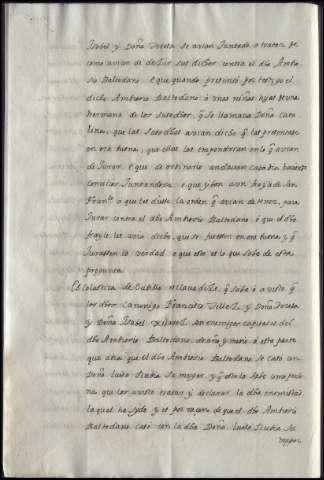 Isabel y Doña Teresa se avian juntado a tratar de
como avian de deçir sus dichos contra el dho Anto
nio Baltodano. e que quando presentó por testigo el
dicho Antonio Baltodano a unas niñas hijas de una
hermana de los susodhos, q se llamava Doña Cata
lina, que las susodhas avian dicho q las pressentasse
en ora buena, que ellas las responderian en lo q avian
de jurar. e que de ordinario andavan cada dia haciendo
conçilios juntandose e que yban a un frayle de San
Franco a que les diesse la orden q avian de tener, para
jurar contra el dho Antonio Baltodano, e que el dho
frayle les avia dicho, que se fuessen en ora buena y q
jurassen la verdad e que esto es lo que sabe de esta
pregunta
Escolastica de Cubillo esclava diçe, q sabe e a visto q
los dhos Canonigo Francisco Tellez, y Doña Teresa
y Doña Isabel son enemigos capitales del
dho Antonio Baltodano, de año y medio a esta parte
que avia que el dho Antonio Baltodano se caso con
Doña Luisa su muger, y q esto lo sabe
que los a visto tratar y declarar la dha enemistad
la qual ha sydo y es por raçon de que el dho Antonio
Baltodano casó con la dha Doña Luisa su
muger